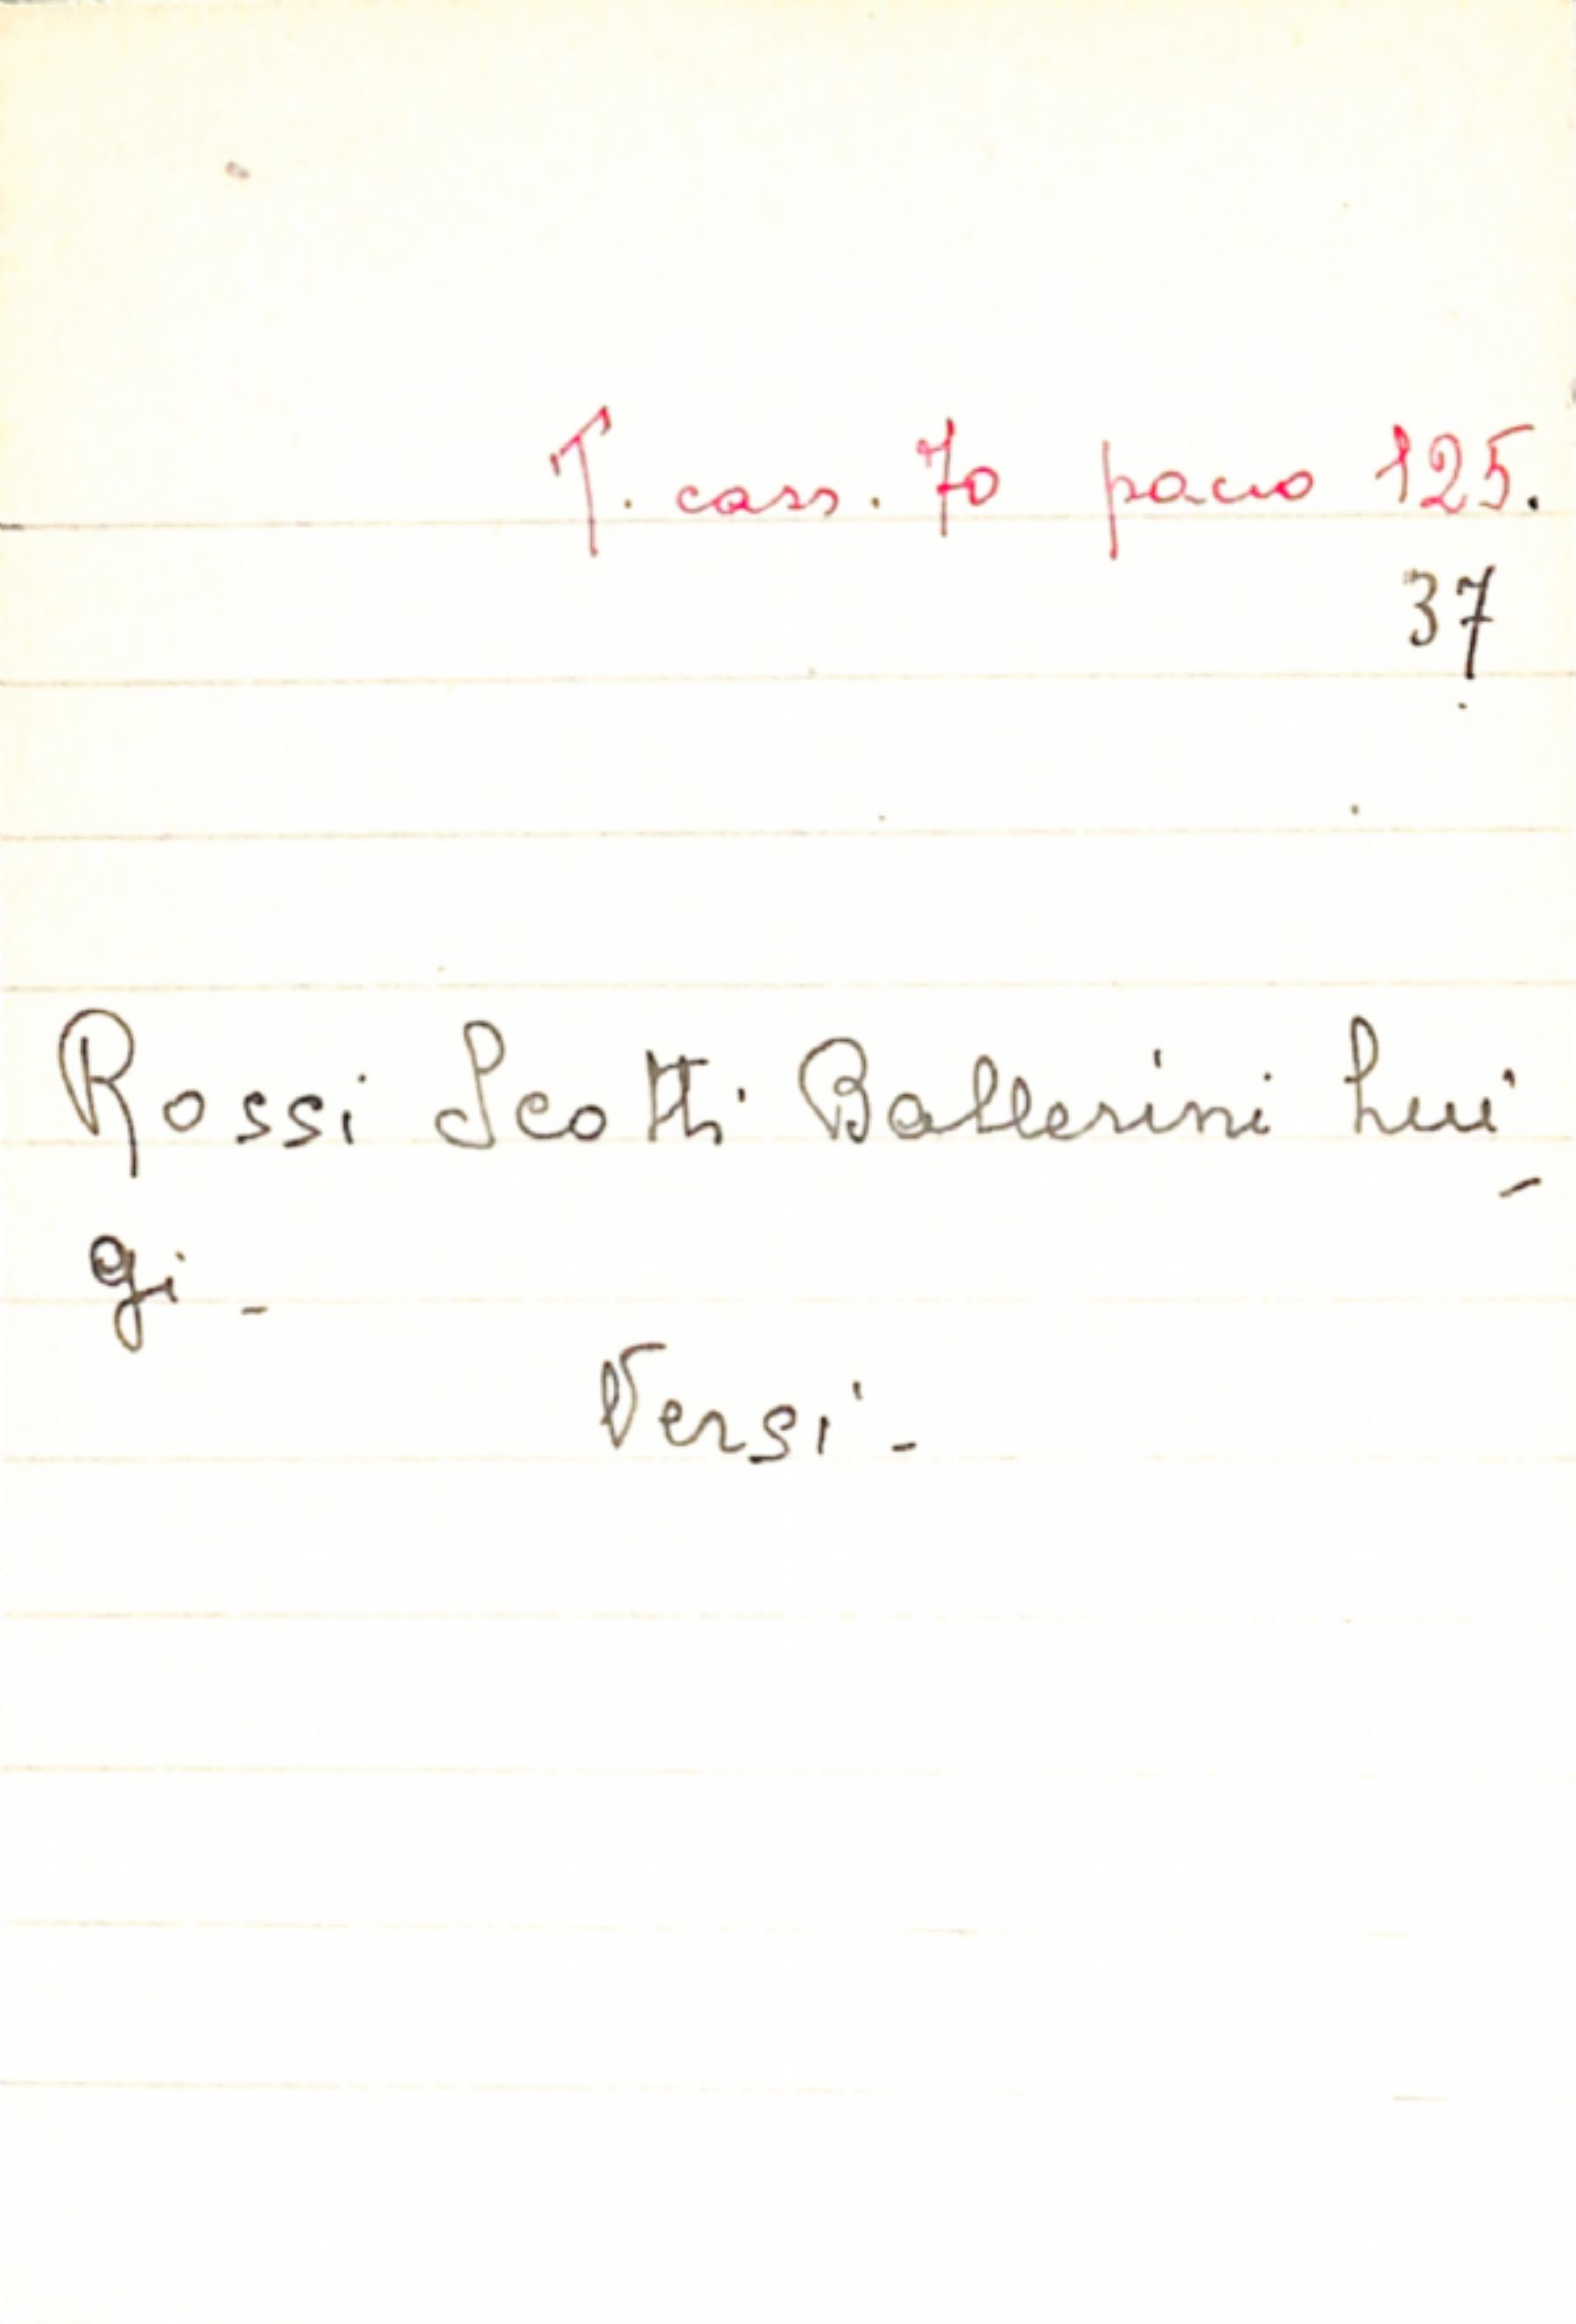 T. cass. 70 pacco 125.
37
Rossi Scotti Ballerini Lui-
gi -
Versi -